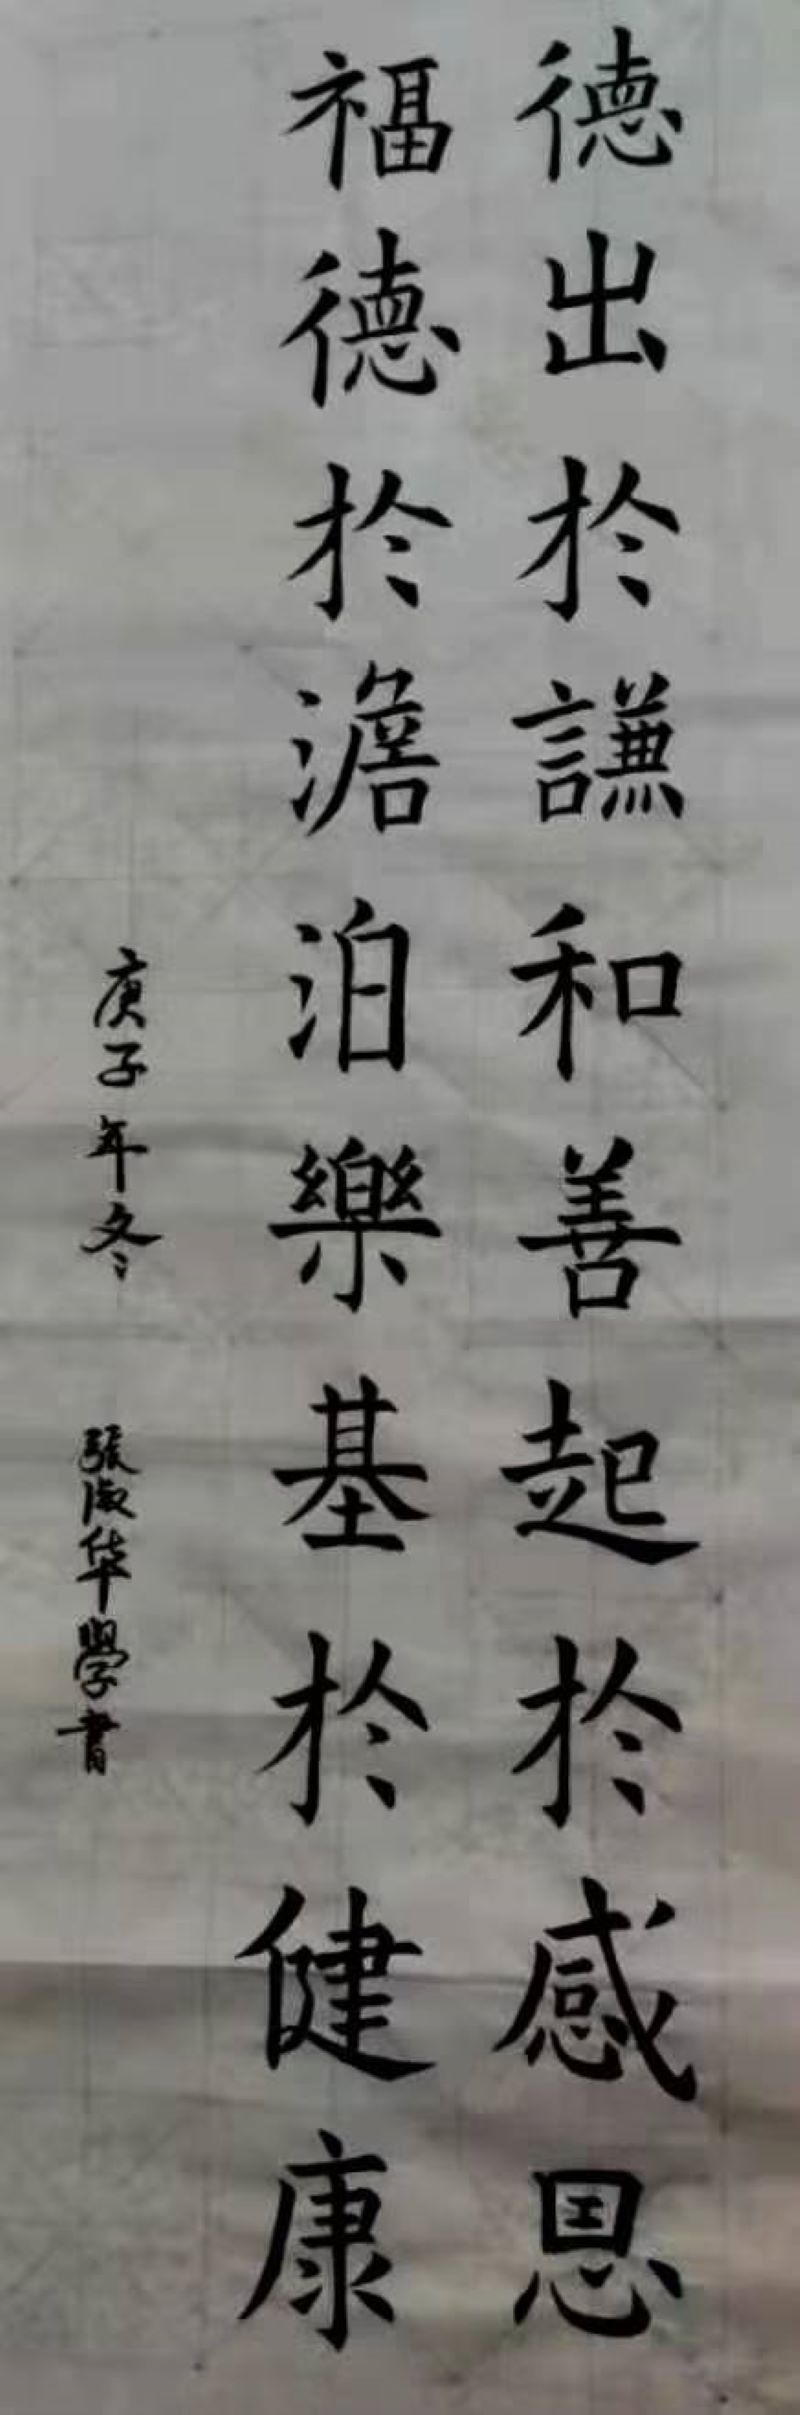 德出於謙和善起於感恩
福德於澹泊樂基於健康
庚子年冬 張淑华學書